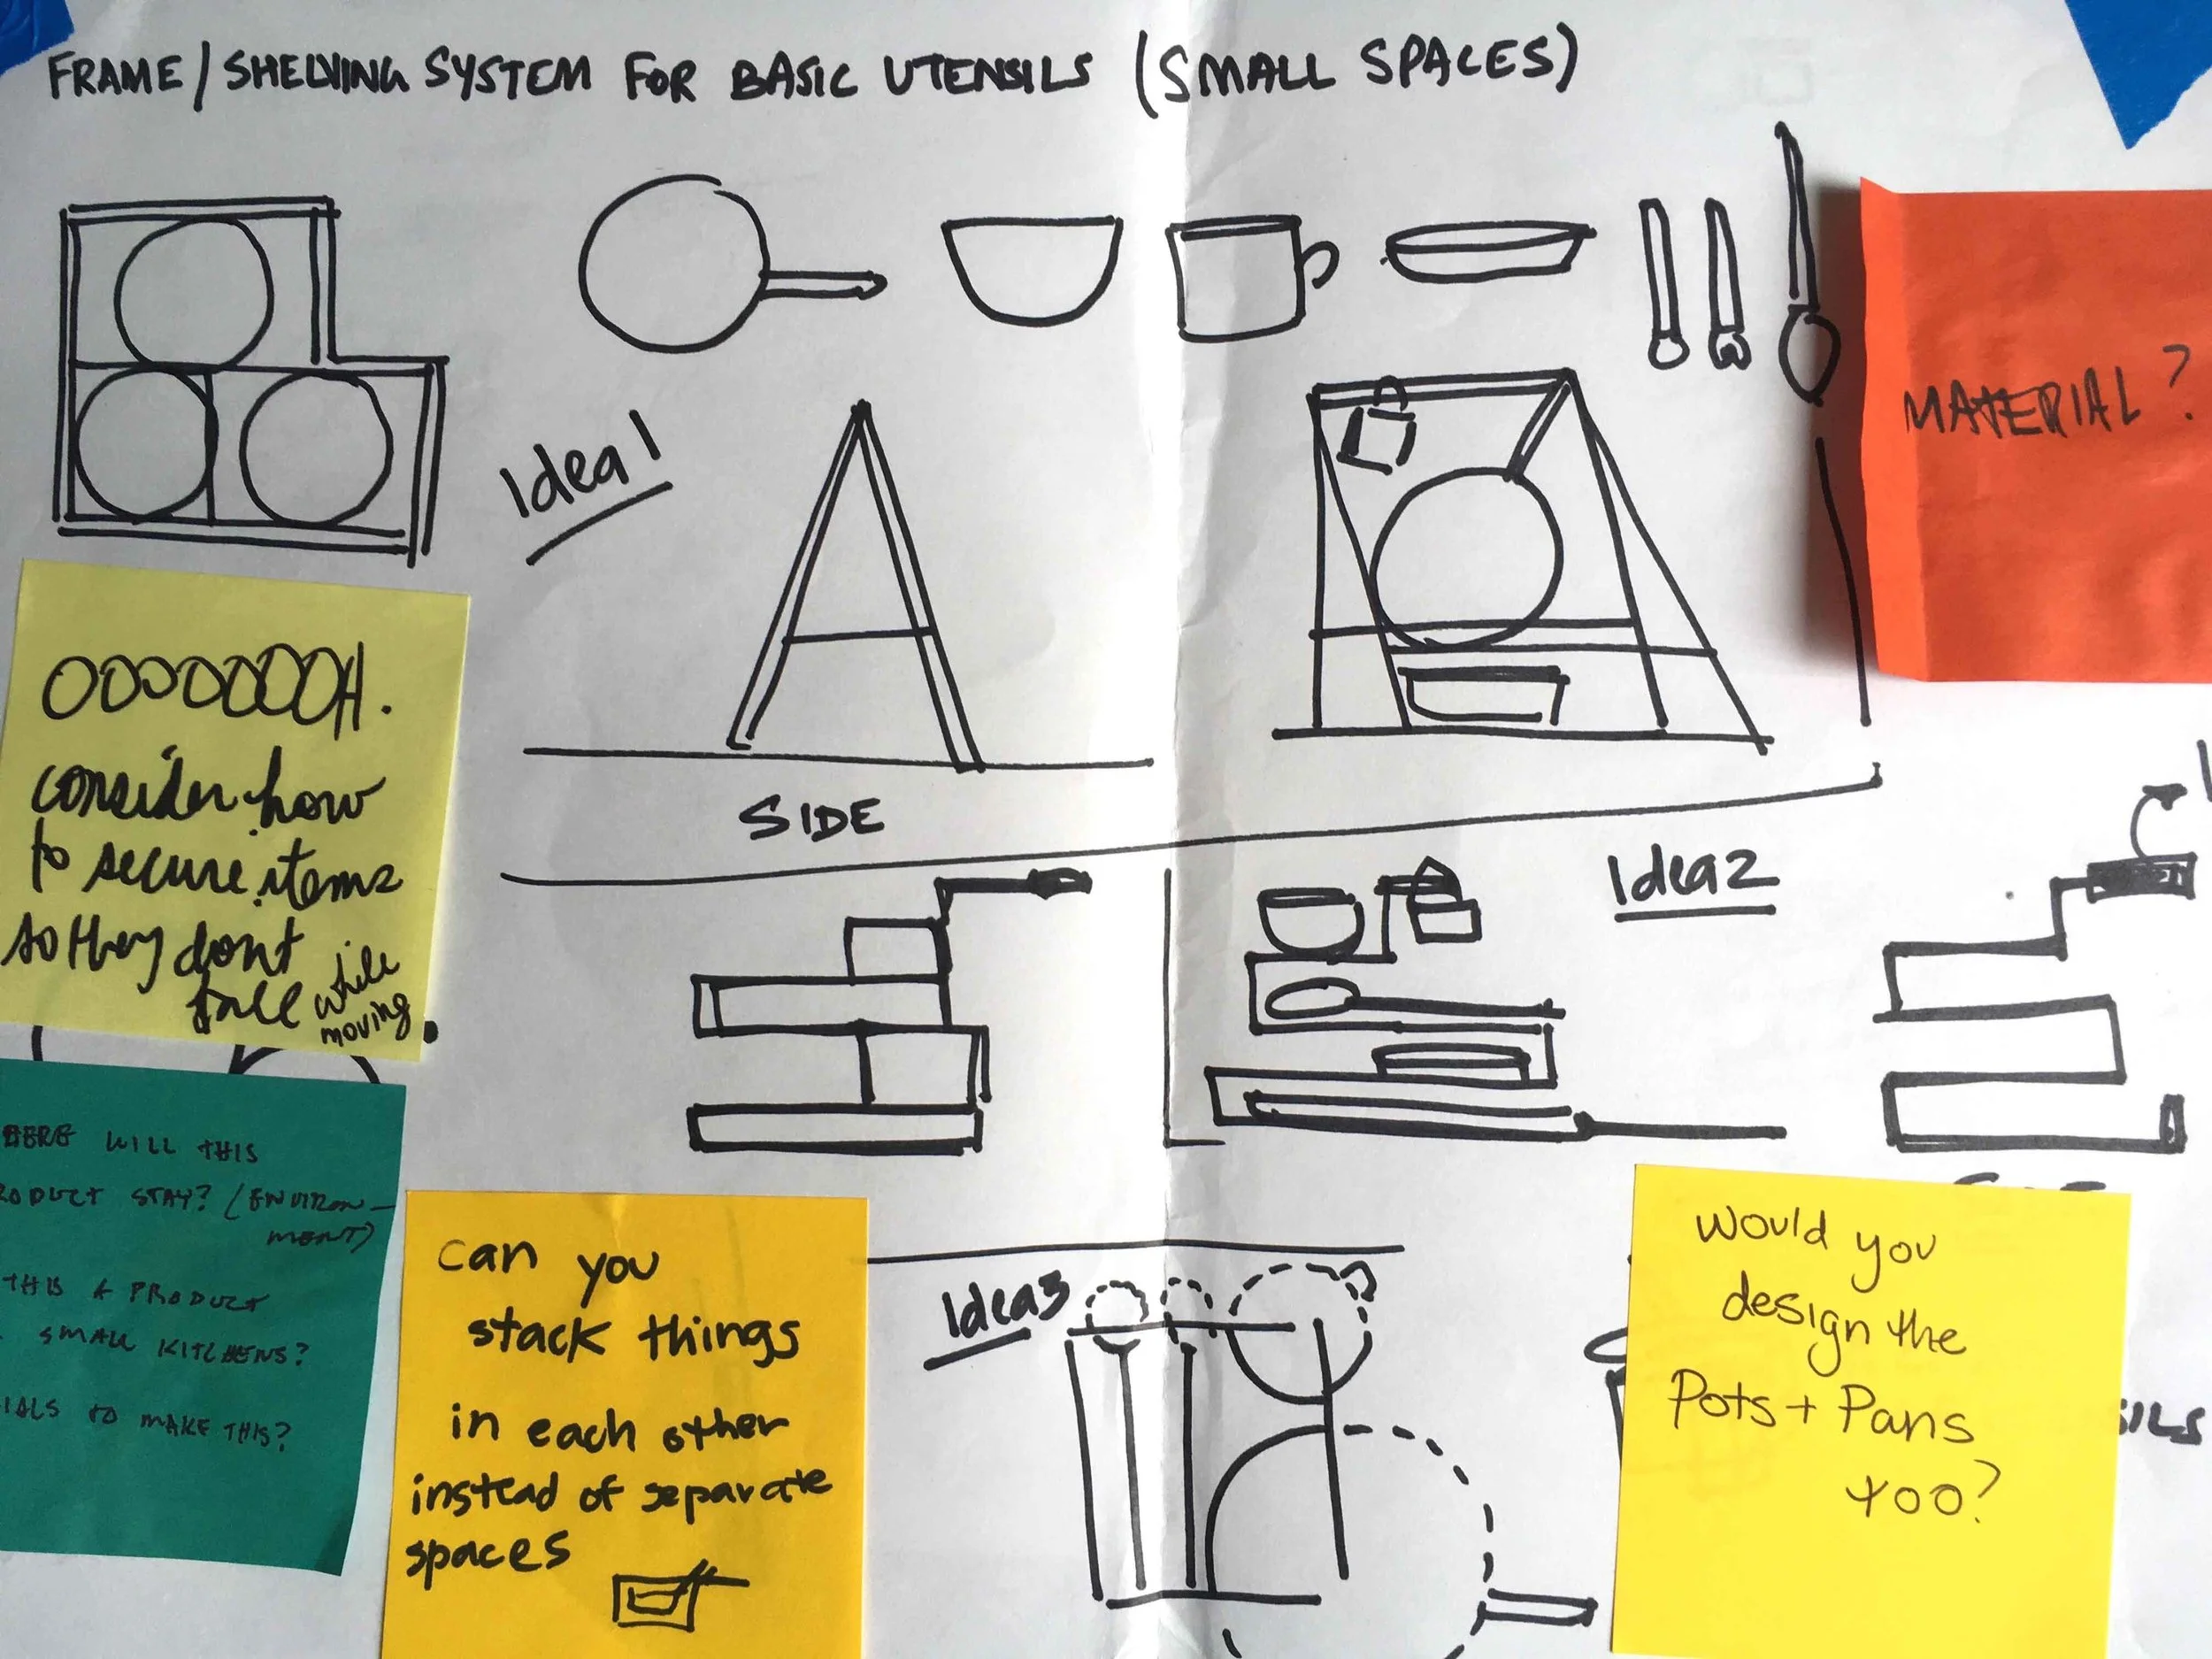 FRAME/SHELVING SYSTEM FOR BASIC UTENSILS (SMALL SPACES)
MATERIAL?
Idea 1
SIDE
OOOOOOOOH.
consider how
to secure items
so they dont
fall while
moving.
Idea 2
WILL THIS
STAY? (ENVIRON-
MENT)
THIS A PRODUCT
SMALL KITCHENS?
TO MAKE THIS?
can you
stack things
in each other
instead of separate
spaces
Idea 3
would you
design the
Pots + Pans
too?